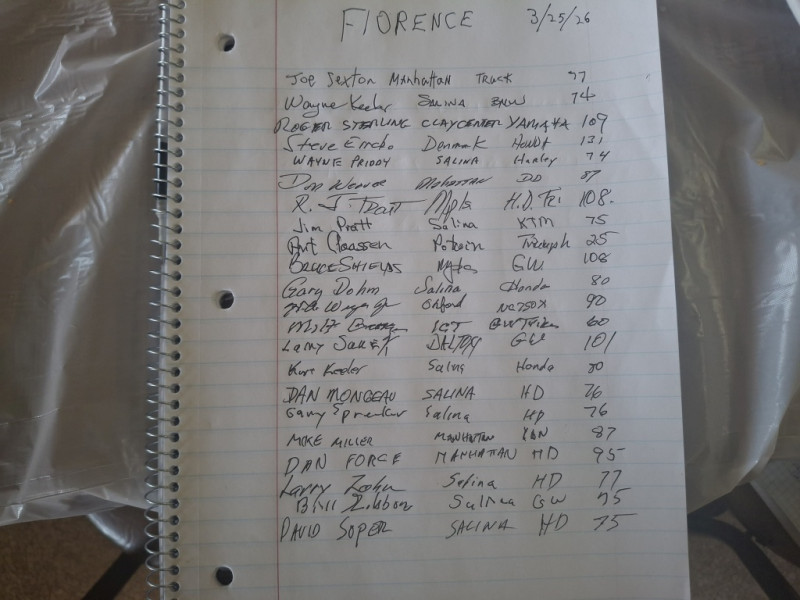 FLORENCE 3/25/26
Joe Sexton Manhattan Truck 97
Wayne Keeler Salina BMW 74
ROGER STERLING CLAYCENTER YAMAHA 109
Steve Denmark 131
WAYNE PRIDDY SALINA Harley 74
Don Weaver Manhattan
R. J. Mpls H.D. Tri 108.
Jim Pratt Salina KTM 75
Claassen Potwin Triumph 25
BRUCE SHIELDS GW 108
Gary Dohm Salina Honda 80
Oxford NC750X 90
ICT GW Trike 60
Larry GW 101
Kurt Keeler Salina Honda 80
DAN MONGEAU SALINA HD 76
Gary Salina HD 76
MIKE MILLER MANHATTAN 87
DAN FORCE MANHATTAN HD 95
Larry Salina HD 77
Bill Salina GW 75
DAVID SOPER SALINA HD 75